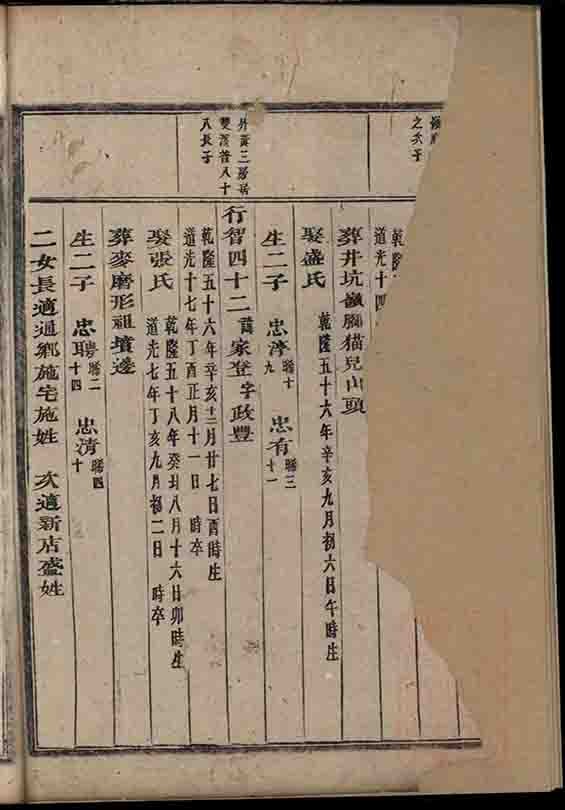 之次子
乾隆
道光十四
葬井坑嶺脚猫兒山頭
娶盛氏 乾隆五十六年辛亥九月初六日午時生
生二子 忠淳 聯十九 忠有 聯三十一
雙溪普八十
八長子
行智四十二 諱家登字政豐
乾隆五十六年辛亥十二月廿七日酉時生
道光十七年丁酉正月十一日 時卒
娶張氏 乾隆五十八年癸丑八月十六日卯時生
道光七年丁亥九月初二日 時卒
葬麥磨形祖墳邊
生二子 忠聘 聯二十四 忠清 聯四十
二女長適通鄉施宅施姓 次適新店盛姓